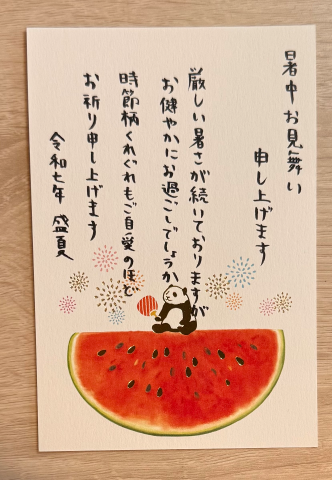 暑中お見舞い
申し上げます
厳しい暑さが続いておりますが
お健やかにお過ごしでしょうか
時節柄くれぐれもご自愛のほど
お祈り申し上げます
令和七年 盛夏